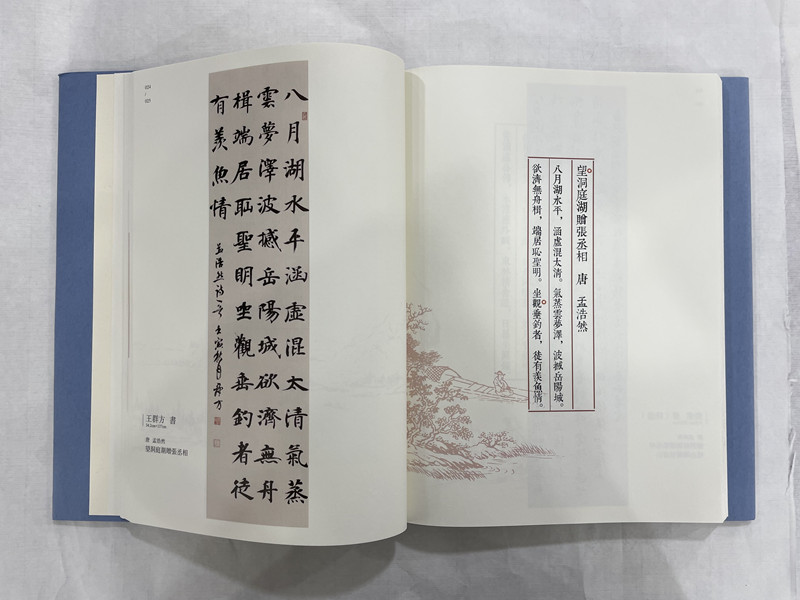 024
/
025
八月湖水平涵虛混太清氣蒸
雲夢澤波撼岳陽城欲濟無舟
楫端居耻聖明坐觀垂釣者徒
有羨魚情
孟浩然詩一首 壬寅秋月群方
王群方 書
唐 孟浩然
望洞庭湖贈張丞相
望洞庭湖贈張丞相 唐 孟浩然
八月湖水平，涵虛混太清。氣蒸雲夢澤，波撼岳陽城。
欲濟無舟楫，端居恥聖明。坐觀垂釣者，徒有羨魚情。